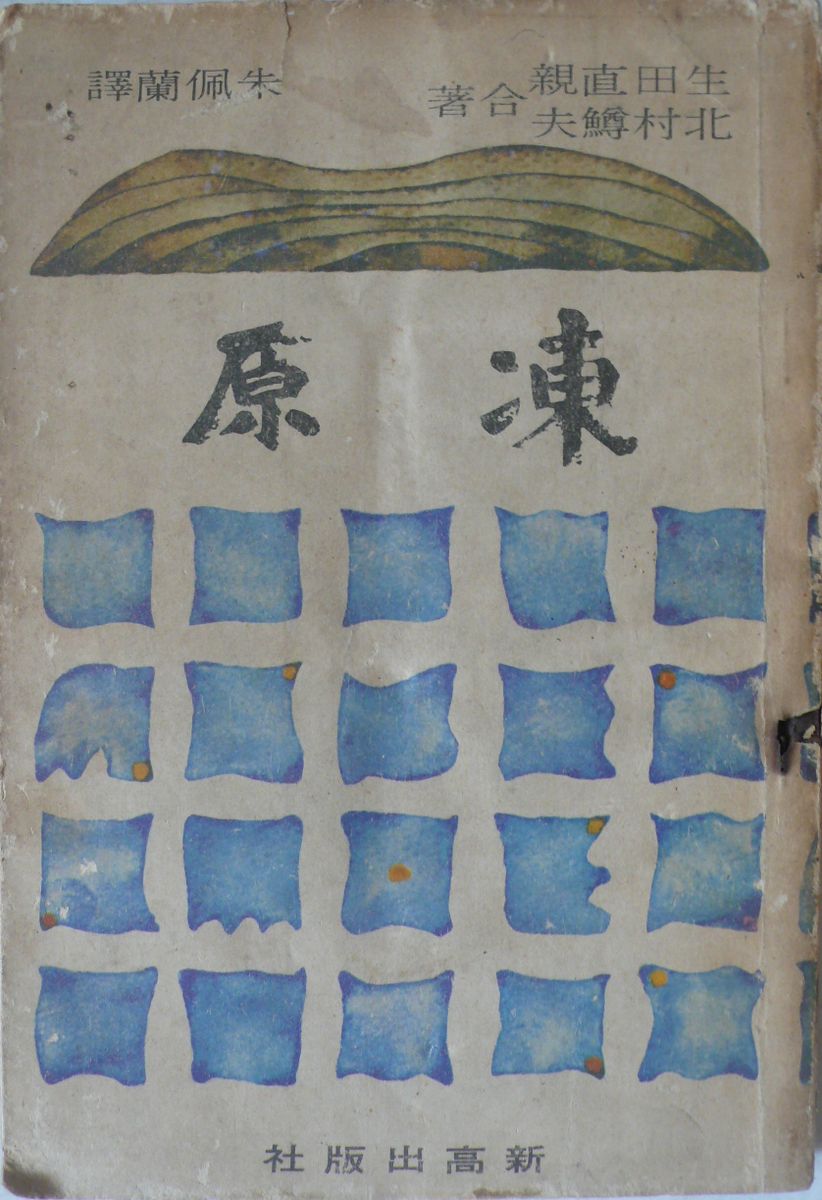 生田直親
北村鱒夫
合著
朱佩蘭譯
凍原
新高出版社